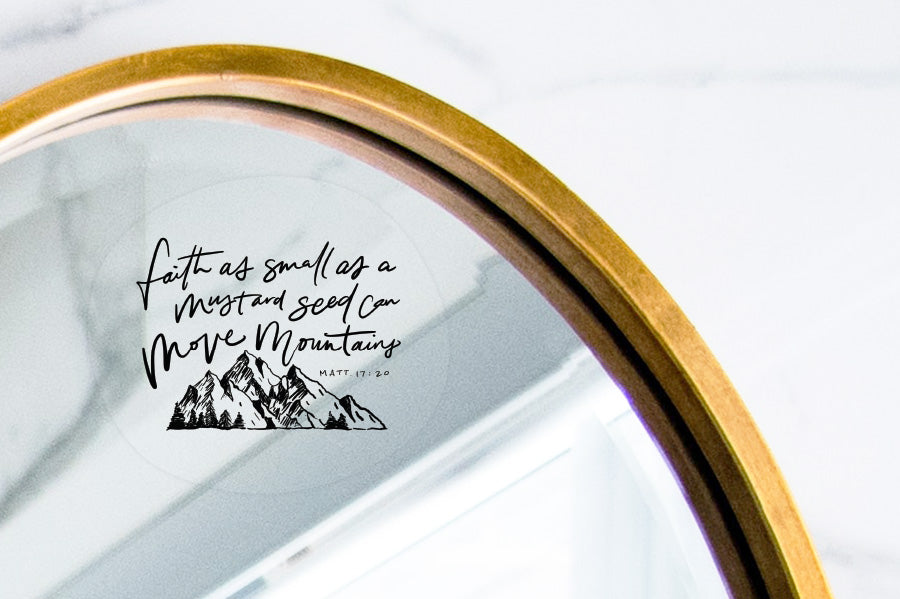 Faith as small as a
mustard seed can
move mountains
MATT. 17:20